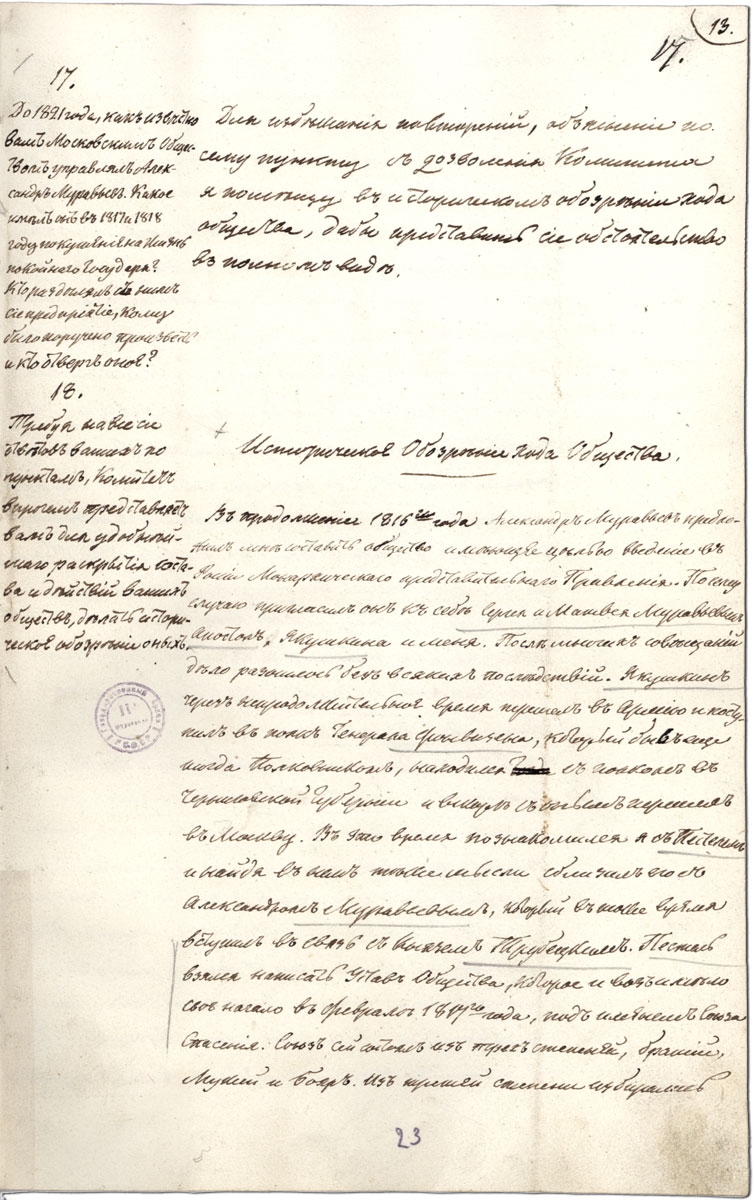 13.
17.
17.
До 1821 года, какъ извѣстно
вамъ Московскимъ Общес-
твомъ управлялъ Алек-
сандръ Муравьевъ. Какое
имѣлъ онъ въ 1817 и 1818
году покушеніе на Жизнь
покойнаго Государя?
Кто раздѣлялъ съ нимъ
сіе предпріятіе, кому
было поручено произвесть
и кто отвергъ оное?
18.
Требуя на всѣ сіи
отвѣтовъ вашихъ по
пунктамъ, Комитетъ
впрочемъ представляетъ
вамъ для удобнѣй-
шаго раскрытія соста-
ва и дѣйствій вашихъ
обществъ, дѣлать истори-
ческое обозрѣніе оныхъ.
Для избѣжанія повтореній, объясненіе по
сему пункту съ дозволенія Комитета
я помѣщу въ историческомъ обозрѣніи хода
общества, дабы представить сіе обстоятельство
въ полномъ видѣ.
Историческое Обозрѣніе Хода Общества.
Въ продолженіе 1816го года Александръ Муравьевъ предло-
жилъ мнѣ составить общество имѣющее цѣлью введеніе въ
Россіи Монархическаго представительнаго Правленія. По сему
случаю пригласилъ онъ къ себѣ Сергѣя и Матвѣя Муравьевыхъ
Апостоловъ, Якушкина и меня. Послѣ совѣщаній
дѣло разошлось безъ всякихъ послѣдствій. Якушкинъ
черезъ непродолжительное время перешелъ въ Армію и посту-
пилъ въ полкъ Генерала Фонвизена, который бывъ еще
тогда Полковникомъ, находился съ полкомъ въ
Черниговской Губерніи и вскорѣ съ онымъ перешелъ
въ Москву. Въ это время познакомился я съ Пестелемъ
и найдя въ немъ тѣже мысли сблизилъ его съ
Александромъ Муравьевымъ, который въ тоже время
вступилъ въ связь съ Княземъ Трубецкимъ. Пестель
взялся написать Уставъ Общества, которое и возъимѣло
свое начало въ Февралѣ 1817го года, подъ имянемъ Союза
Спасенія. Союзъ сей состоялъ изъ трехъ степеней, братій,
Мужей и Бояръ. Изъ третей степени избирались
23